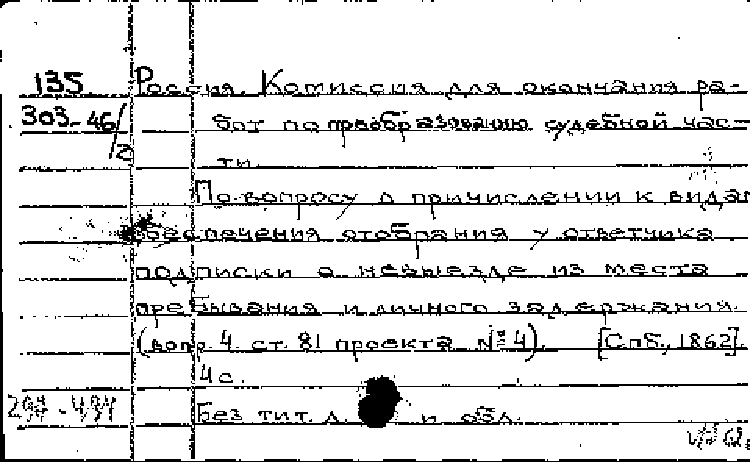 135 Россия. Комиссия для окончания ра-
303-46/2 бот по преобразованию судебной час-
ти.
По вопросу о причислении к видам
обеспечения отобрания у ответчика
подписки о невыезде из места
пребывания и личного задержания.
(вопр. 4 ст. 81 проекта № 4). [Спб., 1862].
4 с.
Без тит. л. и обл.